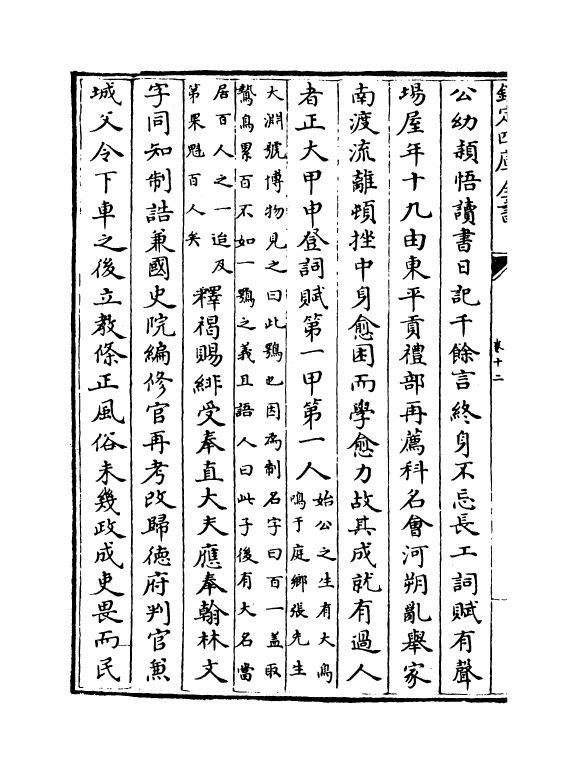 欽定四庫全書
卷十二
公幼頴悟讀書日記千餘言終身不忘長工詞賦有聲
場屋年十九由東平貢禮部再薦科名會河朔亂舉家
南渡流離頓挫中身愈困而學愈力故其成就有過人
者正大甲申登詞賦第一甲第一人始公之生有大鳥
鳴于庭鄉張先生
大淵號博物見之曰此鶚也因爲制名字曰百一盖取
鷙鳥累百不如一鶚之義且語人曰此子後有大名當
居百人之一迨及
第果魁百人矣
釋褐賜緋受奉直大夫應奉翰林文
字同知制誥兼國史院編修官再考改歸徳府判官兼
城父令下車之後立教條正風俗未幾政成吏畏而民